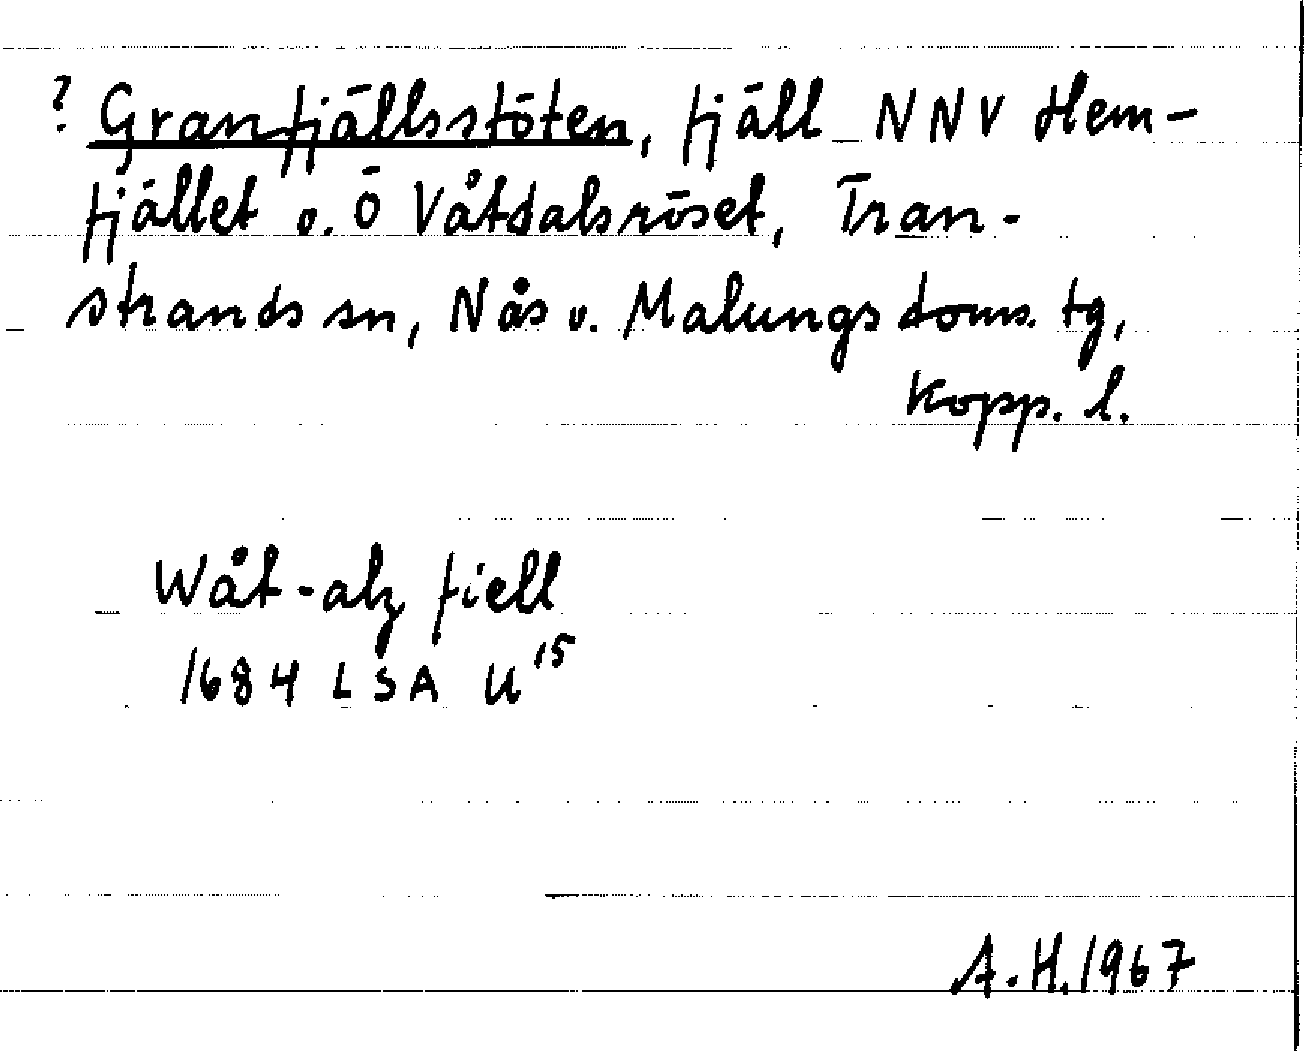 ? Granfjällsstöten, fjäll NNV Hem-
fjället o. Ö Våtdalsröset, Tran-
strands sn, Nås o. Malungs doms. tg,
Kopp. l.
Wåt-alz fiell
1684 LSA U¹⁵
A.H. 1967